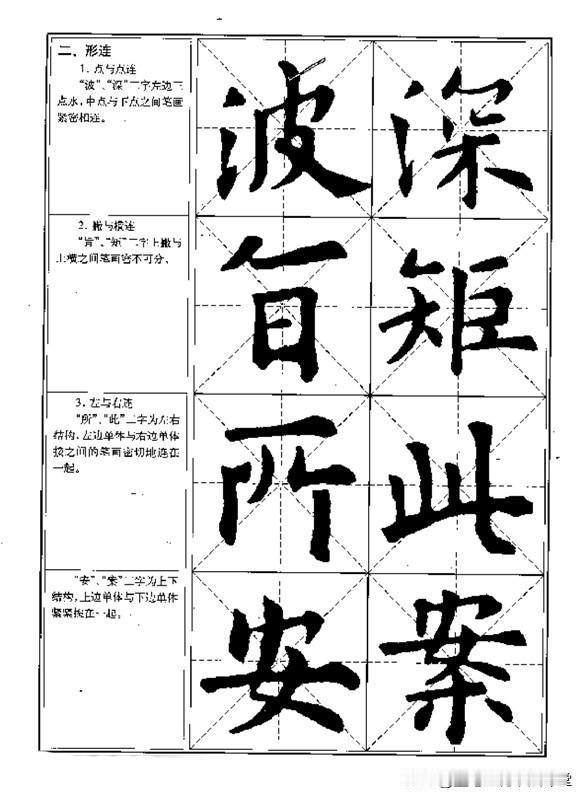 二、形连
1. 点与点连
“波”、“深”二字左边三
点水,中点与下点之间笔画
紧密相连。
波 深
2. 撇与横连
“旨”、“矩”二字上撇与
上横之间笔画密不可分。
旨 矩
3. 左与右连
“所”、“此”二字为左右
结构,左边单体与右边单体
之间的笔画密切地连在
一起。
所 此
“安”、“案”二字为上下
结构,上边单体与下边单体
紧紧挨在一起。
安 案